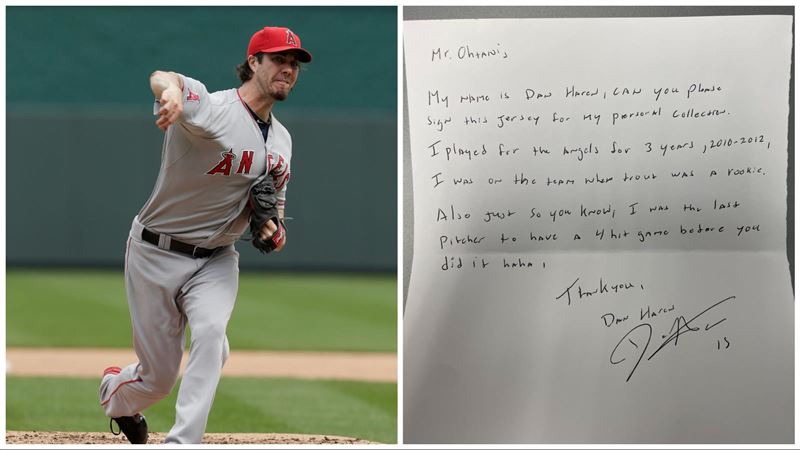 A
ANGE
Mr. Ohtani,
My name is Dan Haren, can you please
sign this jersey for my personal collection.
I played for the Angels for 3 years, 2010-2012,
I was on the team when trout was a rookie.
Also just so you know, I was the last
pitcher to have a 4 hit game before you
did it haha,
Thankyou,
Dan Haren
15